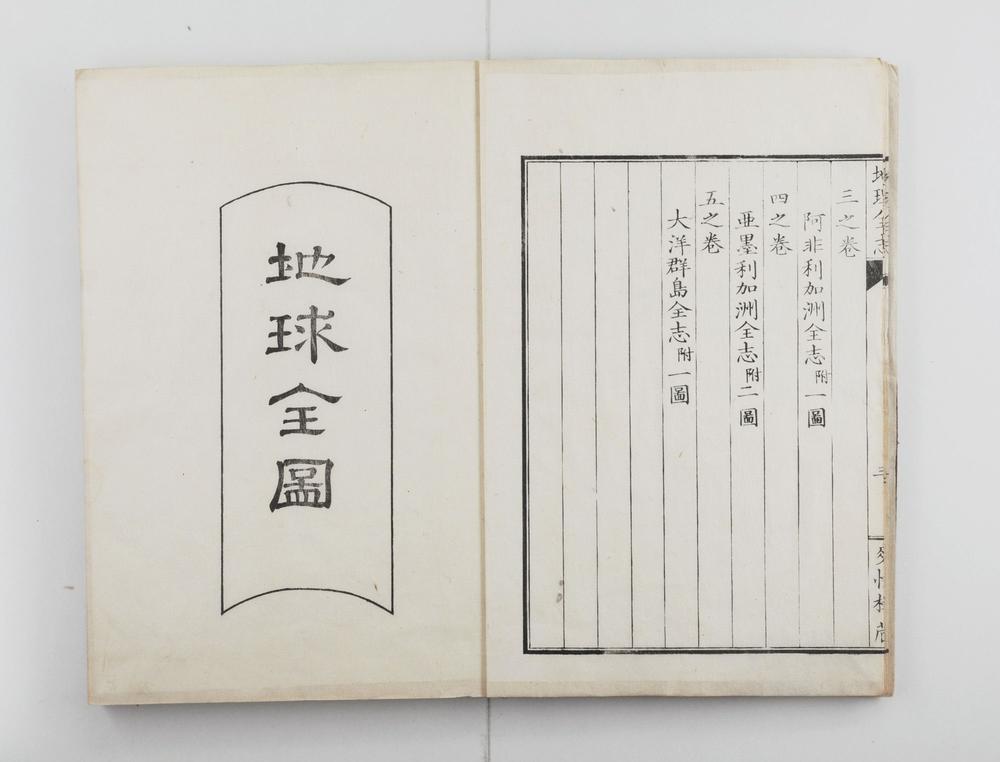 地球全志
三之卷
阿非利加洲全志附一圖
四之卷
亜墨利加洲全志附二圖
五之卷
大洋群島全志附一圖
三
地球全圖